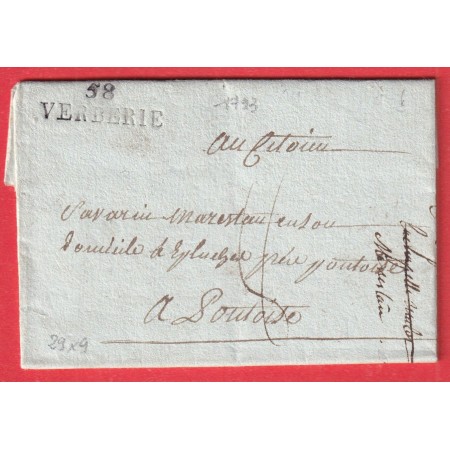 58
VERBERIE
1793
Au Citoien
Savarin Marestau en son
domicile a près pontoise
A Pontoise
29x9